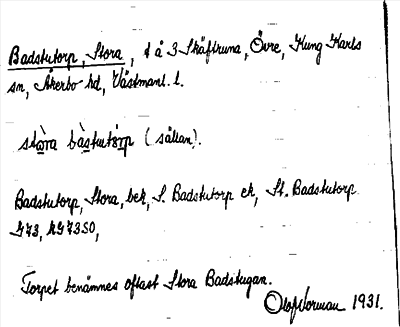 Badstutorp, Stora, t å 3 Skäftruna, Övre, Kung Karls
sn, Åkerbo hd, Västmanl. l.
stòra bàstutårp (sällan).
Badstutorp, Stora, bek, S. Badstutorp ek, St. Badstutorp
G73, HG73SO,
Torpet benämnes oftast Stora Badstugan.
Olof Norman 1931.